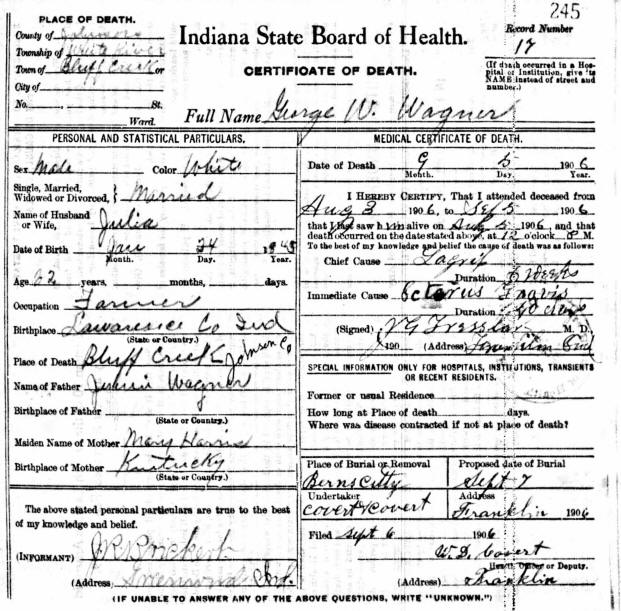 245
PLACE OF DEATH.
County of Johnson
Township of White River
Town of Bluff Creek or
City of
No. St.
Ward.
Indiana State Board of Health.
CERTIFICATE OF DEATH.
Record Number
17
(If death occurred in a Hos-
pital or Institution, give its
NAME instead of street and
number.)
Full Name George W. Wagner
PERSONAL AND STATISTICAL PARTICULARS.
Sex Male Color White
Single, Married,
Widowed or Divorced, } Married
Name of Husband
or Wife, Julia
Date of Birth Jan 24
Month. Day. Year.
Age 62 years, months, days.
Occupation Farmer
Birthplace Lawarence Co Ind
(State or Country.)
Place of Death Bluff Creek Johnson Co
Name of Father Wagner
Birthplace of Father
(State or Country.)
Maiden Name of Mother Mary Harris
Birthplace of Mother Kentucky
(State or Country.)
The above stated personal particulars are true to the best
of my knowledge and belief.
(INFORMANT)
(Address) Ind.
MEDICAL CERTIFICATE OF DEATH.
Date of Death 9 5 1906
Month. Day. Year.
I HEREBY CERTIFY, That I attended deceased from
Aug 3 1906, to Sep 5 1906
that I last saw him alive on Aug 5 1906 and that
death occurred on the date stated above, at 12 o'clock M.
To the best of my knowledge and belief the cause of death was as follows:
Chief Cause Lagrip
Duration 6 Weeks
Immediate Cause
Duration
(Signed) M. D.
190 (Address) Franklin Ind
SPECIAL INFORMATION ONLY FOR HOSPITALS, INSTITUTIONS, TRANSIENTS
OR RECENT RESIDENTS.
Former or usual Residence
How long at Place of death days.
Where was disease contracted if not at place of death?
Place of Burial or Removal Proposed date of Burial
Berns Citty Sept 7
Undertaker Address
Covert & Covert Franklin 1906
Filed Sept 6 1906
Covert
Health Officer or Deputy.
(Address) Franklin
(IF UNABLE TO ANSWER ANY OF THE ABOVE QUESTIONS, WRITE "UNKNOWN.")